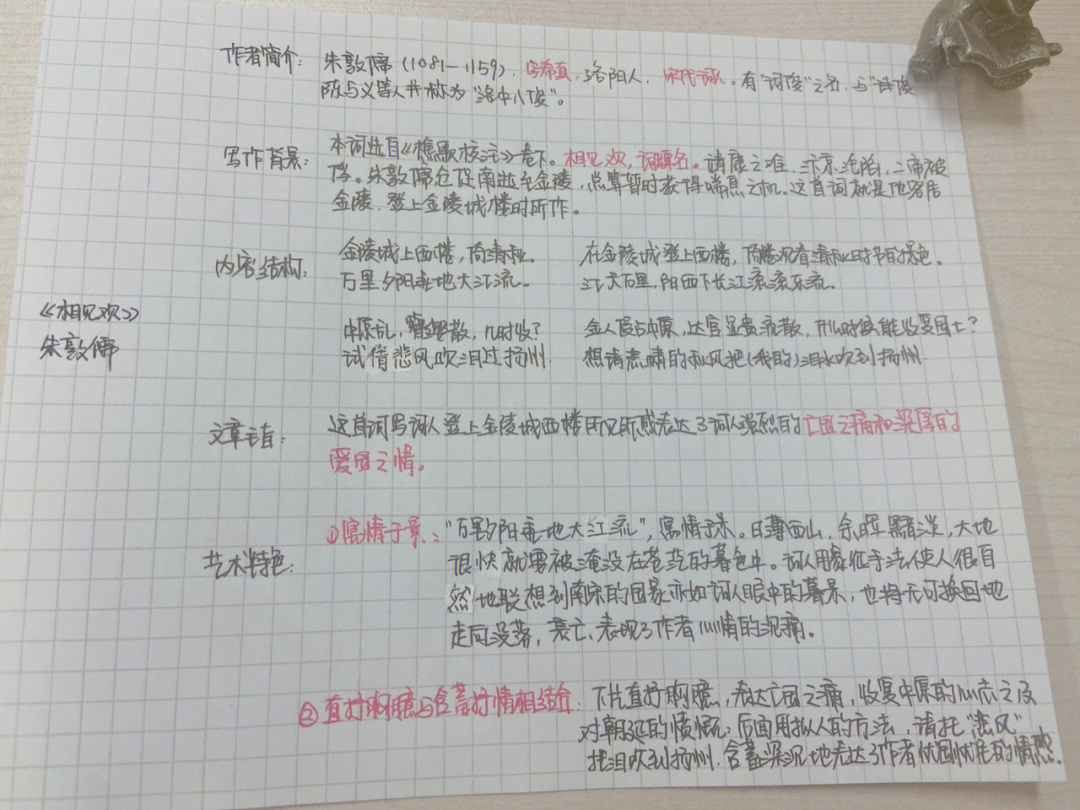 作者简介: 朱敦儒(1081—1159),字希真,洛阳人,宋代词人。有“词俊”之名,与“诗俊”
陈与义等人并称为“洛中八俊”。
写作背景: 本词出自《樵歌校注》卷下。相见欢,词牌名。靖康之难,汴京沦陷,二帝被
俘。朱敦儒仓促南逃至金陵,总算暂时获得喘息之机。这首词就是他客居
金陵,登上金陵城楼时所作。
内容结构: 金陵城上西楼,倚清秋。 在金陵城登上西楼,倚楼观看清秋时节的景色。
万里夕阳垂地大江流。 江天万里,阳西下长江滚滚东流。
《相见欢》
朱敦儒
中原乱,簪缨散,几时收? 金人侵占中原,达官显贵流散,什么时候能收复国土?
试倩悲风吹泪过扬州. 想请悲啸的秋风把(我的)泪水吹到扬州.
文章主旨: 这首词写词人登上金陵城西楼所见所感表达了词人强烈的亡国之痛和深厚的
爱国之情。
艺术特色: ①寓情于景:“万里夕阳垂地大江流”,寓情于景。日薄西山,余晖黯淡,大地
很快就要被淹没在苍茫的暮色中。词人用象征手法使人很自
然地联想到南宋的国家亦如词人眼中的暮景,也将无可换回地
走向没落,衰亡,表现了作者心情的沉痛。
②直抒胸臆与含蓄抒情相结合. 下片直抒胸臆,表达亡国之痛,收复中原的心志之及
对朝廷的愤慨;后面用拟人的方法,请托“悲风”
把泪吹到扬州.含蓄深沉地表达了作者忧国忧民的情感.